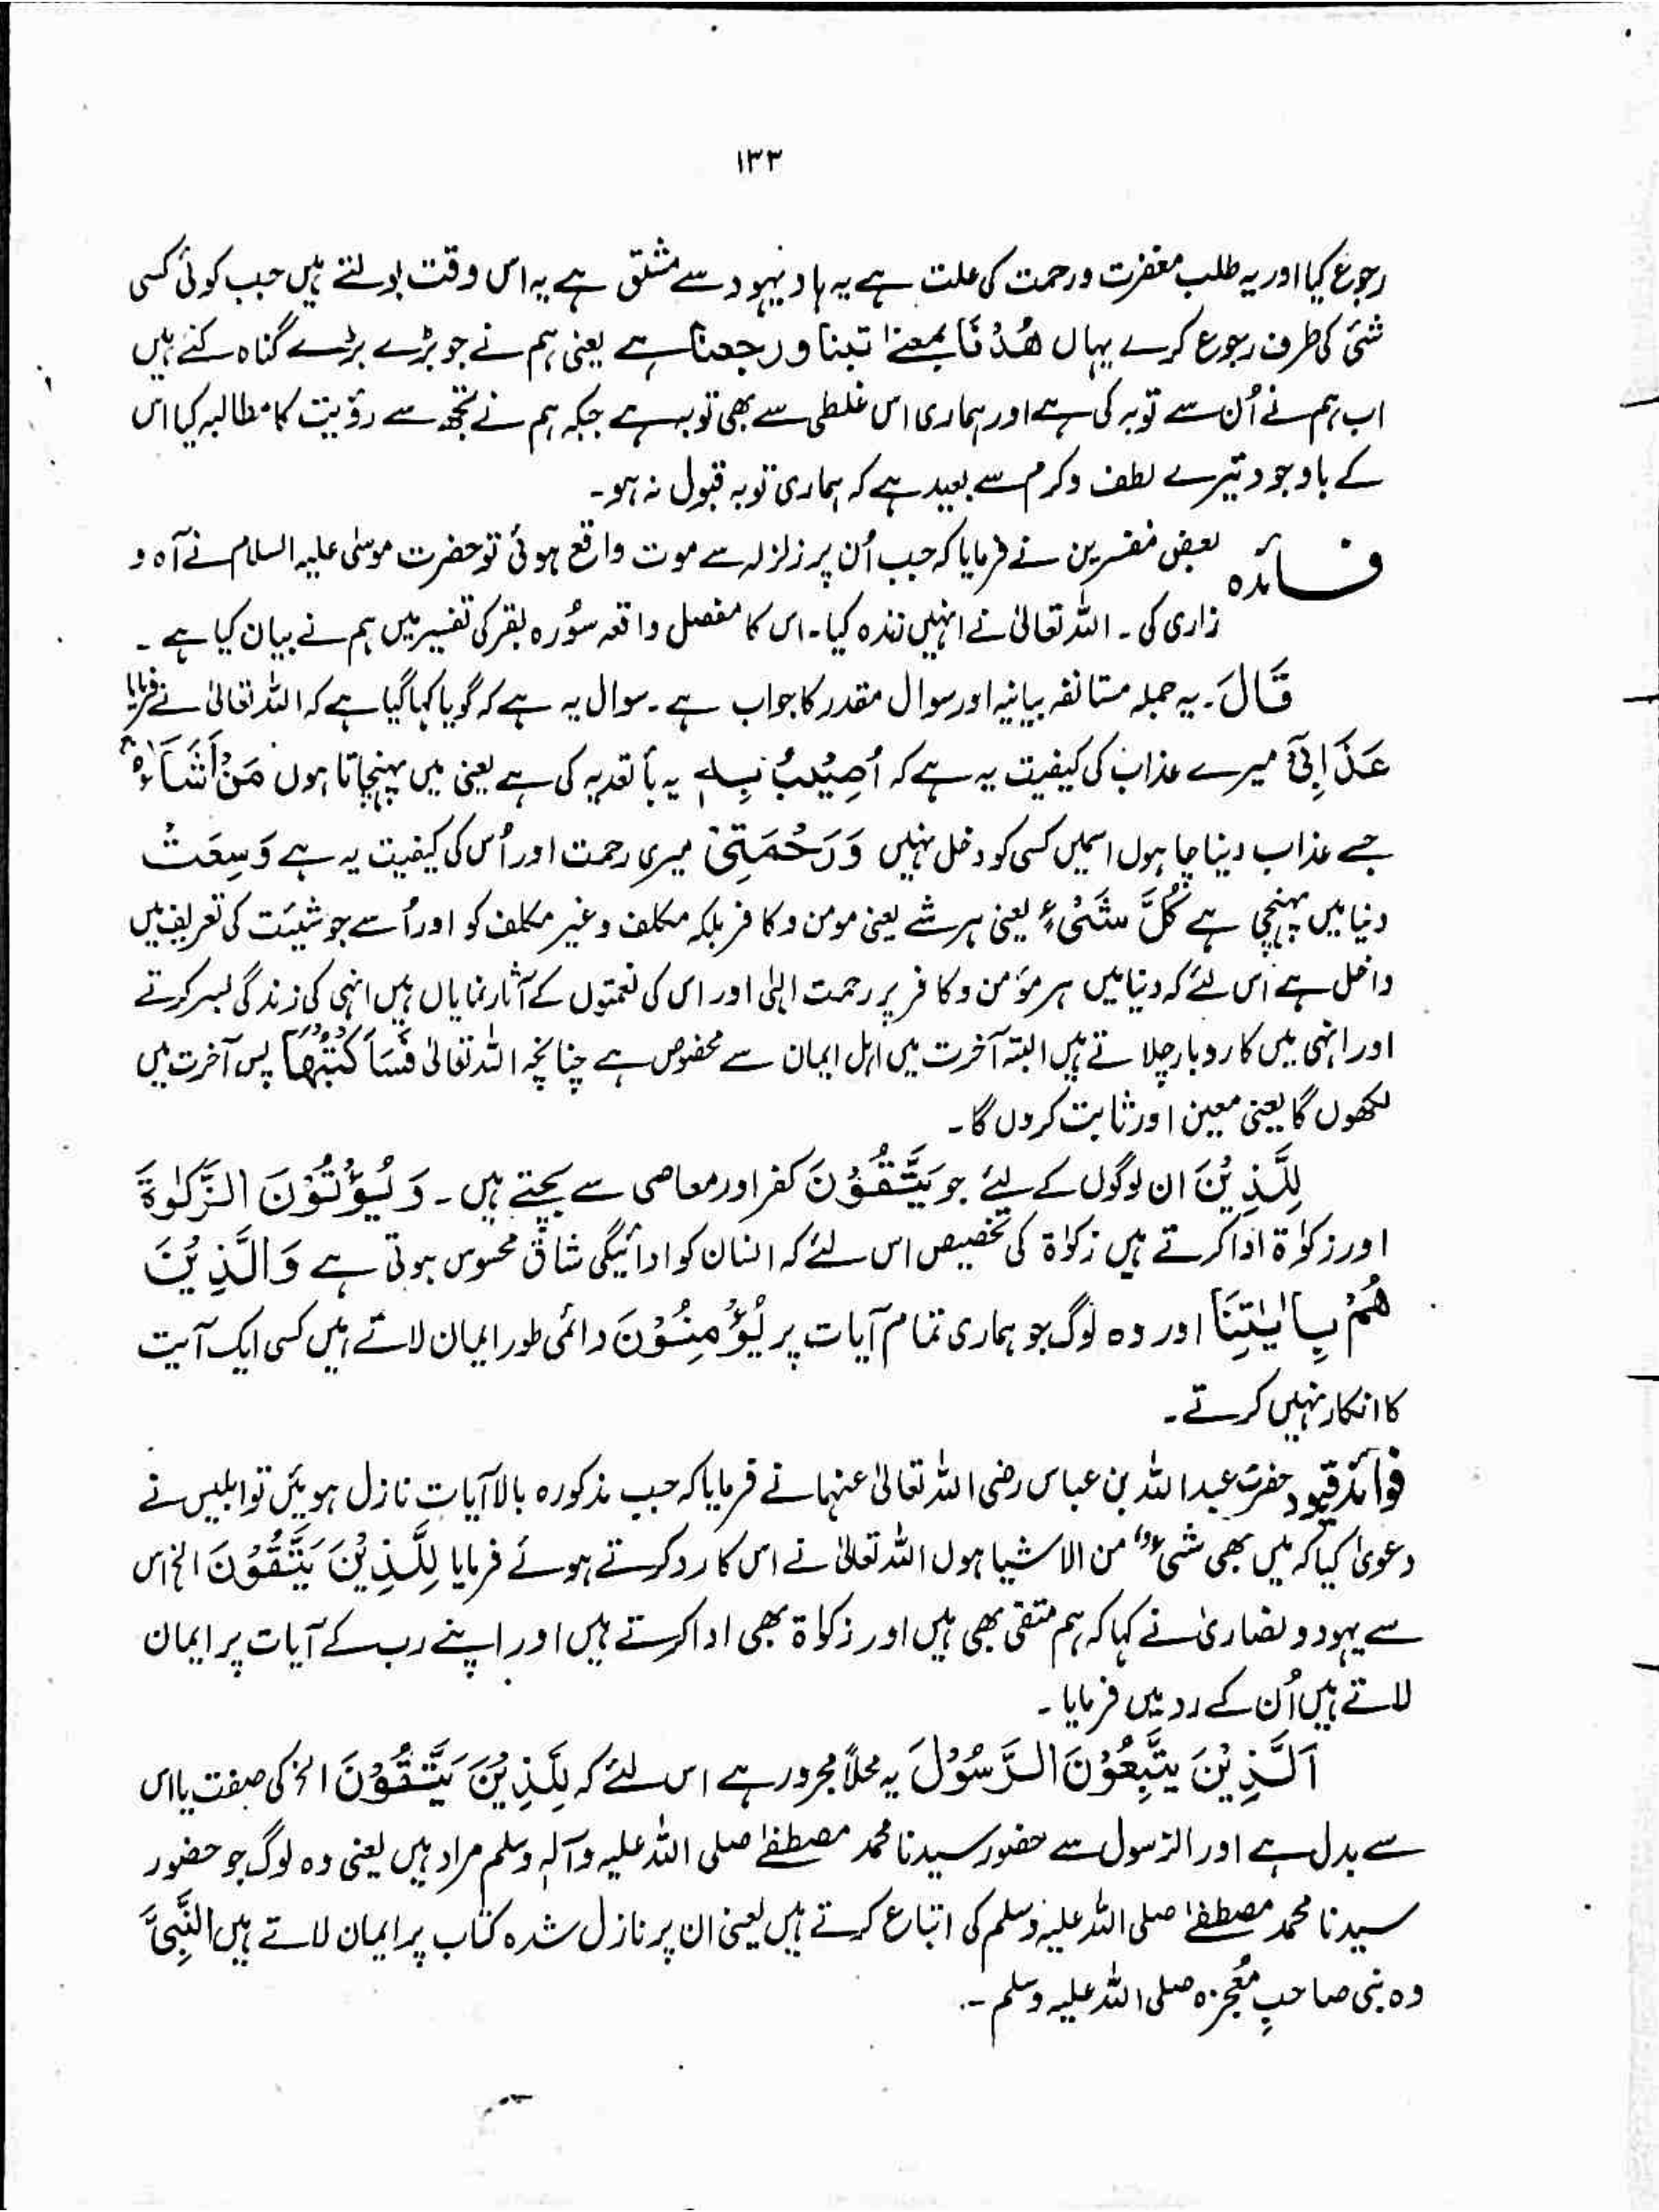 ۱۳۳
رجوع کیا اور یہ طلب مغفرت ورحمت کی علت ہے یہ ہاد یہود سے مشتق ہے یہ اس وقت بولتے ہیں جب کوئی کسی
شئی کی طرف رجوع کرے یہاں ھُدْنَا بمعنےٰ تبنا ورجعنا ہے یعنی ہم نے جو بڑے بڑے گناہ کئے ہیں
اب ہم نے اُن سے توبہ کی ہے اور ہماری اس غلطی سے بھی توبہ ہے جبکہ ہم نے تجھ سے رؤیت کا مطالبہ کیا اس
کے باوجود تیرے لطف وکرم سے بعید ہے کہ ہماری توبہ قبول نہ ہو۔
فائدہ بعض مفسرین نے فرمایا کہ جب اُن پر زلزلہ سے موت واقع ہوئی تو حضرت موسیٰ علیہ السلام نے آہ و
زاری کی۔ اللہ تعالیٰ نے انہیں زندہ کیا۔ اس کا مفصل واقعہ سُورہ بقر کی تفسیر میں ہم نے بیان کیا ہے۔
قَالَ۔ یہ جملہ مستانفہ بیانیہ اور سوال مقدر کا جواب ہے۔ سوال یہ ہے کہ گویا کہا گیا ہے کہ اللہ تعالیٰ نے فرمایا
عَذَابِیْٓ میرے عذاب کی کیفیت یہ ہے کہ اُصِیْبُ بِہٖ یہ بأ تعدیہ کی ہے یعنی میں پہنچاتا ہوں مَنْ اَشَآءُ
جسے عذاب دینا چاہوں اسمیں کسی کو دخل نہیں وَرَحْمَتِیْ میری رحمت اور اُس کی کیفیت یہ ہے وَسِعَتْ
دنیا میں پہنچی ہے کُلَّ شَیْءٍ یعنی ہر شے یعنی مومن وکافر بلکہ مکلف وغیر مکلف کو اور اُسے جو شیئت کی تعریف میں
داخل ہے اس لئے کہ دنیا میں ہر مؤمن وکافر پر رحمت الٰہی اور اس کی نعمتوں کے آثار نمایاں ہیں انہی کی زندگی بسر کرتے
اور انہی میں کاروبار چلاتے ہیں البتہ آخرت میں اہل ایمان سے مخصوص ہے چنانچہ اللہ تعالیٰ فَسَاَکْتُبُھَا پس آخرت میں
لکھوں گا یعنی معین اور ثابت کروں گا۔
لِلَّذِیْنَ ان لوگوں کے لئے جو یَتَّقُوْنَ کفر اور معاصی سے بچتے ہیں۔ وَیُؤْتُوْنَ الزَّکٰوۃَ
اور زکوٰۃ ادا کرتے ہیں زکوٰۃ کی تخصیص اس لئے کہ انسان کو ادائیگی شاق محسوس ہوتی ہے وَالَّذِیْنَ
ھُمْ بِاٰیٰتِنَا اور وہ لوگ جو ہماری تمام آیات پر یُؤْمِنُوْنَ دائمی طور ایمان لاتے ہیں کسی ایک آیت
کا انکار نہیں کرتے۔
فوائد قیود حضرت عبداللہ بن عباس رضی اللہ تعالیٰ عنہما نے فرمایا کہ جب مذکورہ بالا آیات نازل ہوئیں تو ابلیس نے
دعویٰ کیا کہ میں بھی شیءٌ من الاشیا ہوں اللہ تعالیٰ نے اس کا رد کرتے ہوئے فرمایا لِلَّذِیْنَ یَتَّقُوْنَ الخ اس
سے یہود و نصاریٰ نے کہا کہ ہم متقی بھی ہیں اور زکوٰۃ بھی ادا کرتے ہیں اور اپنے رب کے آیات پر ایمان
لاتے ہیں اُن کے رد میں فرمایا۔
اَلَّذِیْنَ یَتَّبِعُوْنَ الرَّسُوْلَ یہ محلاً مجرور ہے اس لئے کہ لِلَّذِیْنَ یَتَّقُوْنَ الخ کی صفت یا اس
سے بدل ہے اور الرّسول سے حضور سیدنا محمد مصطفےٰ صلی اللہ علیہ وآلہٖ وسلم مراد ہیں یعنی وہ لوگ جو حضور
سیدنا محمد مصطفےٰ صلی اللہ علیہ وسلم کی اتباع کرتے ہیں یعنی ان پر نازل شدہ کتاب پر ایمان لاتے ہیں النَّبِیَّ
وہ نبی صاحبِ مُعجزہ صلی اللہ علیہ وسلم۔